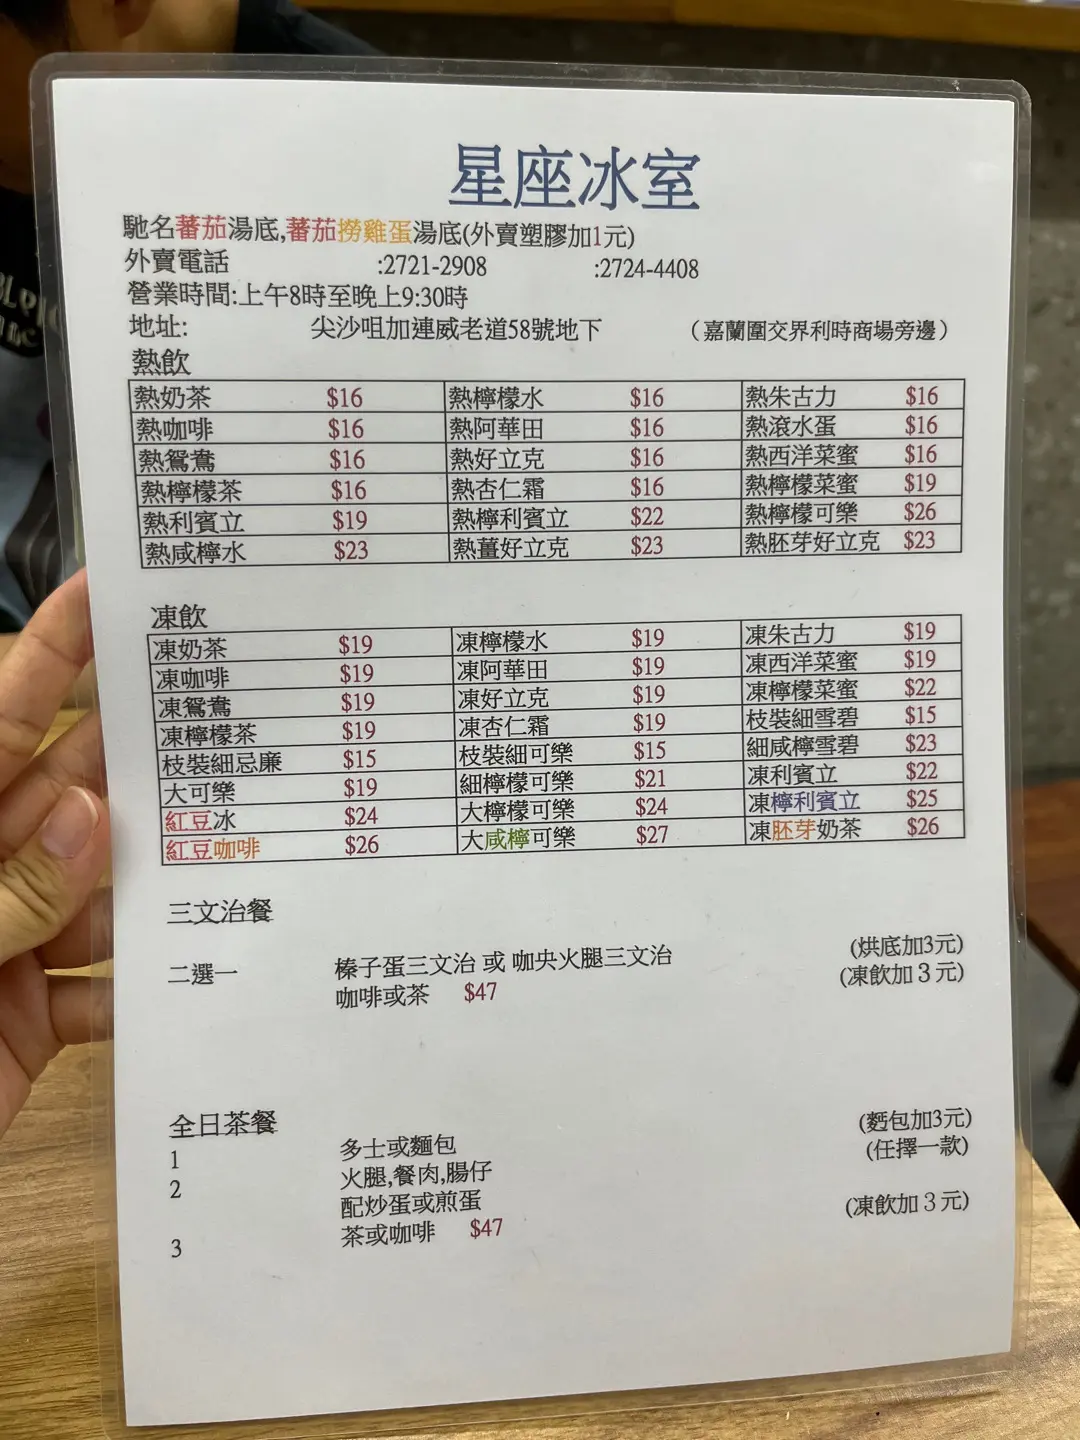 星座冰室
馳名蕃茄湯底,蕃茄撈雞蛋湯底(外賣塑膠加1元)
外賣電話 :2721-2908 :2724-4408
營業時間:上午8時至晚上9:30時
地址: 尖沙咀加連威老道58號地下 （嘉蘭圍交界利時商場旁邊）
熱飲
熱奶茶 $16 熱檸檬水 $16 熱朱古力 $16
熱咖啡 $16 熱阿華田 $16 熱滾水蛋 $16
熱鴛鴦 $16 熱好立克 $16 熱西洋菜蜜 $16
熱檸檬茶 $16 熱杏仁霜 $16 熱檸檬菜蜜 $19
熱利賓立 $19 熱檸利賓立 $22 熱檸檬可樂 $26
熱咸檸水 $23 熱薑好立克 $23 熱胚芽好立克 $23
凍飲
凍奶茶 $19 凍檸檬水 $19 凍朱古力 $19
凍咖啡 $19 凍阿華田 $19 凍西洋菜蜜 $19
凍鴛鴦 $19 凍好立克 $19 凍檸檬菜蜜 $22
凍檸檬茶 $19 凍杏仁霜 $19 枝裝細雪碧 $15
枝裝細忌廉 $15 枝裝細可樂 $15 細咸檸雪碧 $23
大可樂 $19 細檸檬可樂 $21 凍利賓立 $22
紅豆冰 $24 大檸檬可樂 $24 凍檸利賓立 $25
紅豆咖啡 $26 大咸檸可樂 $27 凍胚芽奶茶 $26
三文治餐
(烘底加3元)
二選一 榛子蛋三文治 或 咖央火腿三文治 (凍飲加３元)
咖啡或茶 $47
全日茶餐 (麪包加3元)
1 多士或麵包 (任擇一款)
2 火腿,餐肉,腸仔
配炒蛋或煎蛋 (凍飲加３元)
3 茶或咖啡 $47